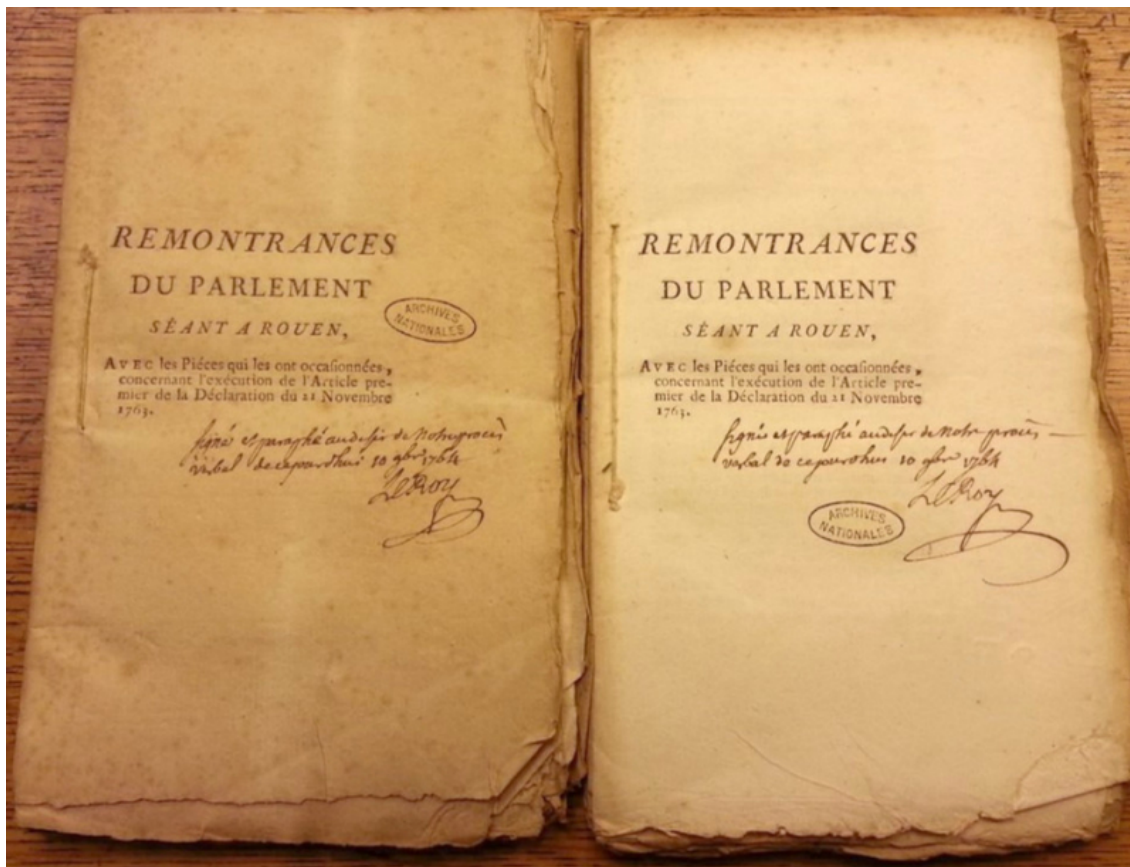 REMONTRANCES
DU PARLEMENT
SÉANT A ROUEN,
AVEC les Piéces qui les ont occasionnées,
concernant l'exécution de l'Article pre-
mier de la Déclaration du 21 Novembre
1763.
signé et paraphé au desir de Notre procès
verbal de cejourdhui 10 9bre 1764
LeRoy
ARCHIVES
NATIONALES
REMONTRANCES
DU PARLEMENT
SÉANT A ROUEN,
AVEC les Piéces qui les ont occasionnées,
concernant l'exécution de l'Article pre-
mier de la Déclaration du 21 Novembre
1763.
signé et paraphé au desir de Notre procès
verbal de cejourdhui 10 9bre 1764
LeRoy
ARCHIVES
NATIONALES